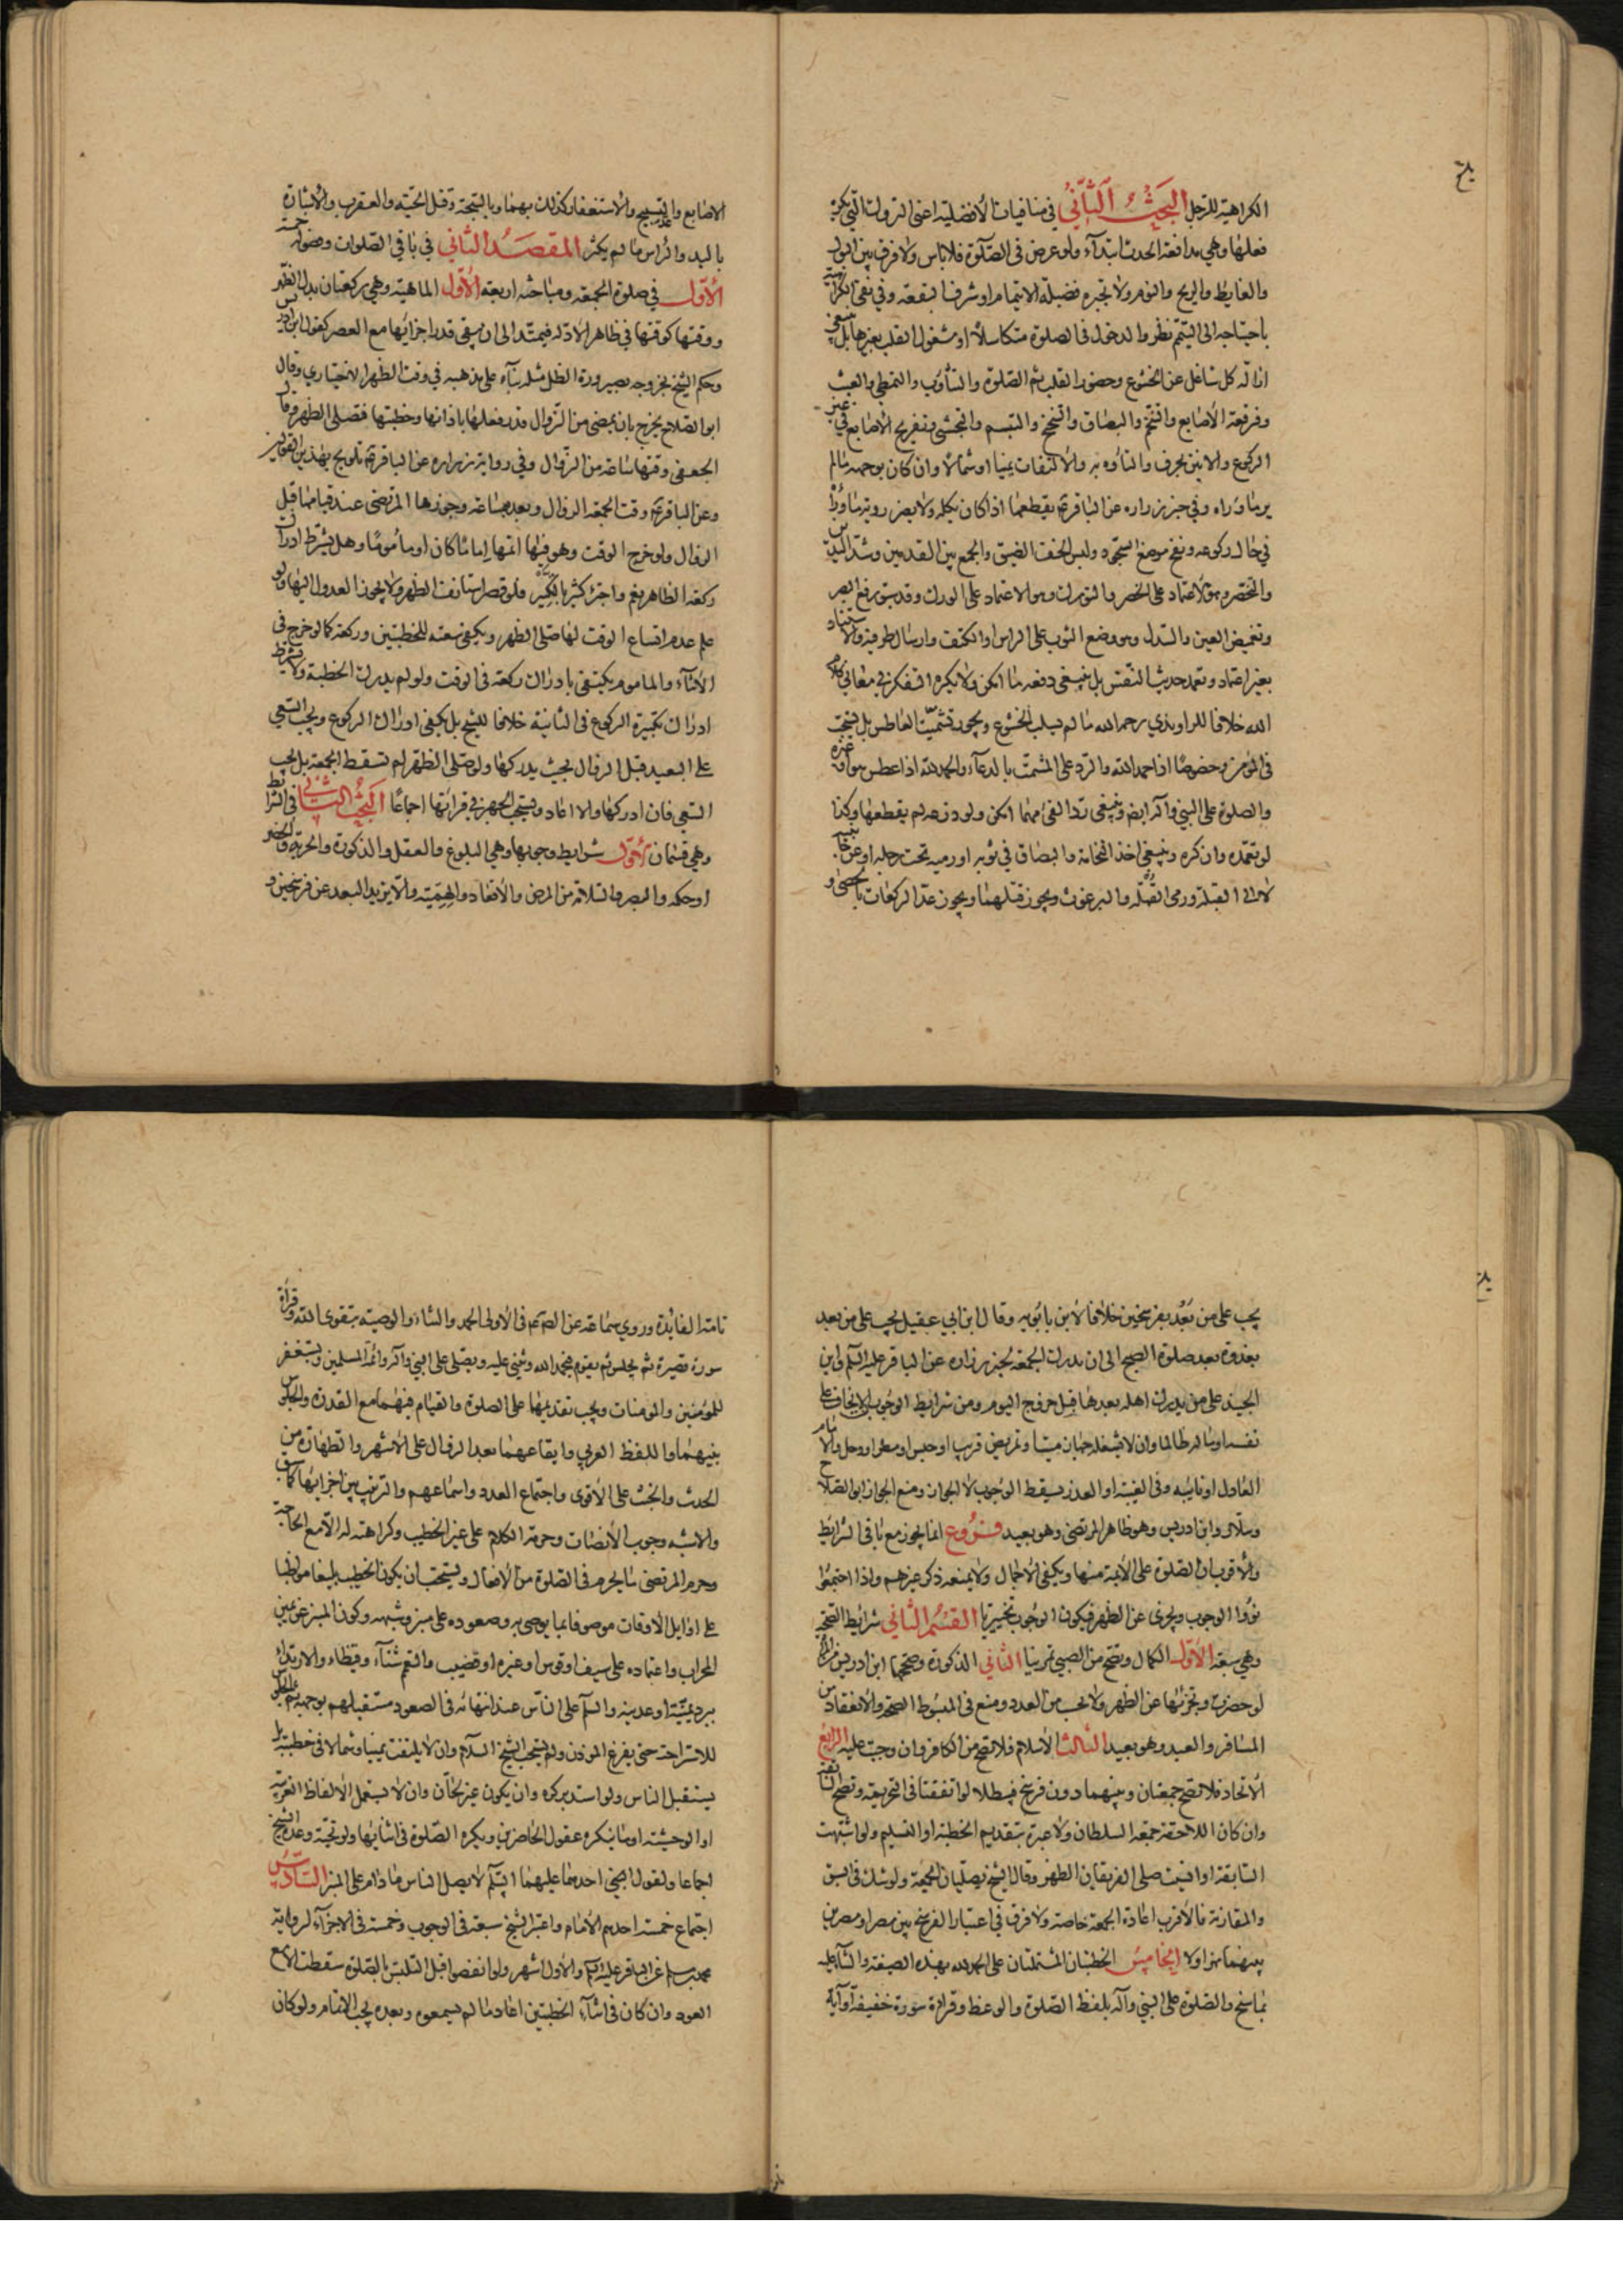 الكراهية للرجل البحث الثاني في منافيات الأفضلية اعني التروك التي يكره
فعلها وهي مدافعة الحدث ابتدآء ولو عرض في الصلوة فلا باس ولا فرق بين البول
والغايط والريح والنوم ولا يجبره فضيلة الايتمام او شرف البقعة وفي نفي الكراهية
باحتياجه الى التيمم نظر والدخول في الصلوة متكاسلا او مشغول القلب بغيرها بل ينبغي
ازالة كل شاغل عن الخشوع وحضور القلب ثم الصلوة والتثاؤب والتمطي والعبث
وفرقعة الأصابع والتنخم والبصاق والتنخع والتبسم والتجشي وتفريج الأصابع في غير
الركوع والانين بحرف والتأوه به والالتفات يمينا او شمالا وان كان بوجهه مالم
ير ما ورآه وفي خبر زراره عن الباقر ع يقطعها اذا كان بكله ولا يضر رؤية ما ورآه
في حال ركوعه ونفخ موضع السجود ولبس الخف الضيق والجمع بين القدمين وشد اليدين
والتخصر وهو الاعتماد على الخصر والتورك وهو الاعتماد على الورك وقد سبق رفع البصر
وتغميض العين والسدل وهو وضع الثوب على الراس او الكتف وارسال طرفيه والاستناد
بغير اعتماد وتعمد حديث النفس بل ينبغي دفعه ما امكن ولا يكره التفكر في معاني كلام
الله خلافا للراوندي رحمه الله ما لم يسلب الخشوع ويجوز تشميت العاطس بل يستحب
في المؤمن وخصوصا اذا حمد الله والرد على المشمت بالدعآء والحمد لله اذا عطس هو او غيره
والصلوة على النبي وآله ايضا وينبغي رد القئ مهما امكن ولو ذرعه لم يقطعها وكذا
لو تعمده وان كره وينبغي اخذ النخامة والبصاق في ثوبه او رميه تحت رجله او عن جانبيه
لا الى القبلة ورمي القملة والبرغوث ويجوز قتلهما ويجوز عد الركعات بالحصى و
الاصابع والتسبيح والاستغفار كذلك بهما وبالسبحة وقتل الحية والعقرب والاشارة
باليد والراس ما لم يكثر المقصد الثاني في باقي الصلوات وفصوله خمسة
الأول في صلوة الجمعة ومباحثه اربعة الأول الماهية وهي ركعتان بدل الظهر
ووقتها كوقتها في ظاهر الادلة فيمتد الى ان يبقى قدر اجزائها مع العصر كقول ابن ادريس
وحكم الشيخ بخروجه بصيرورة الظل مثله بنآء على مذهبه في وقت الظهر الاختياري وقال
ابو الصلاح يخرج بان يمضي من الزوال قدر فعلها باذانها وخطبتها فتصلى الظهر وقال
الجعفي وقتها ساعة من الزوال وفي رواية زراره عن الباقر ع تلويح بهذين القولين
وعن الباقر ع وقت الجمعة الزوال وبعده بساعة وجوزها المرتضى عند قيامها قبل
الزوال ولو خرج الوقت وهو فيها اتمها اماما كان او مأموما وهل يشترط ادراك
ركعة الظاهر نعم واجتزأ كثير بالتكبير فلو قصر استأنف الظهر ولا يجوز العدول اليها ولو
علم عدم اتساع الوقت لها صلى الظهر ويكفي سعته للخطبتين وركعة كما لو خرج في
الاثناء والماموم يكتفي بادراك ركعة في الوقت ولو لم يدرك الخطبة ولا يشترط
ادراك تكبيرة الركوع في الثانية خلافا للشيخ بل يكفي ادراك الركوع ويجب السعي
على البعيد قبل الزوال بحيث يدركها ولو صلى الظهر لم تسقط الجمعة بل يجب
السعي فان ادركها والا اعاد ويستحب الجهر في قرائتها اجماعا البحث الثاني في الشرائط
وهي قسمان الأول شرايط وجوبها وهي البلوغ والعقل والذكورة والحرية والحضر
او حكمه والبصر والسلامة من المرض والاقعاد والهمية والا يزيد البعد عن فرسخين و
يجب على من بَعُد بفرسخين خلافا لابن بابويه وقال ابن ابي عقيل يجب على من يعد
بغدوة بعد صلوة الصبح الى ان يدرك الجمعة لخبر زراره عن الباقر عليه السلم وابن
الجنيد على من يدرك اهله بعدها قبل خروج اليوم ومن شرايط الوجوب الا يخاف على
نفسه او ماله ظالما وان لا يشغله جهاز ميت او تمريض قريب او حبس او مطر او وحل والامام
العادل او نائبه وفي الغيبة او العذر يسقط الوجوب لا الجواز ومنع الجواز ابو الصلاح
وسلار وابن ادريس وهو ظاهر المرتضى وهو بعيد فروع انما يجوز مع باقي الشرائط
والاقرب ان الصلوة على الائمة منها ويكفي الاجمال ولا يمنعه ذكر غيرهم واذا اجتمعوا
نووا الوجوب ويجزئ عن الظهر فيكون الوجوب تخييريا القسم الثاني شرائط الصحة
وهي سبعة الأول الكمال وتصح من الصبي تمرينا الثاني الذكورة وصححها ابن ادريس من المرأة
لو حضرت وتجزئها عن الظهر ولا تحسب من العدد ومنع في المبسوط الصحة والانعقاد من
المسافر والعبد وهو بعيد الثالث الاسلام فلا تصح من الكافر وان وجبت عليه الرابع
الاتحاد فلا تصح جمعتان وبينهما دون فرسخ فيبطلا لو اتفقتا في التحريمة وتصح السابقة
وان كان اللاحقة جمعة السلطان ولا عبرة بتقديم الخطبة او التسليم ولو اشتبهت
السابقة او انسيت صلى الفريقان الظهر وقال الشيخ يصليان الجمعة ولو شك في السبق
والمقارنة فالأقرب اعادة الجمعة خاصة ولا فرق في اعتبار الفرسخ بين مصر او مصرين
بينهما نهر او لا الخامس الخطبتان المشتملتان على الحمد لله بهذه الصيغة والثناء عليه
بما سنح والصلوة على النبي وآله بلفظ الصلوة والوعظ وقراءة سورة خفيفة او آية
تامة الفايدة وروي سماعة عن الصم ع في الاولى الحمد والثناء والوصية بتقوى الله وقرأة
سورة قصيرة ثم يجلس ثم يقوم فيحمد الله ويثني عليه ويصلى على النبي وآله وائمة المسلمين ويستغفر
للمؤمنين والمؤمنات ويجب تقديمها على الصلوة والقيام فيهما مع القدرة والجلوس
بينهما واللفظ العربي وايقاعهما بعد الزوال على الاشهر والطهارة من
الحدث والخبث على الأقوى واجتماع العدد واسماعهم والترتيب بين اجزائها كما سبق
والاشبه وجوب الانصات وحرمة الكلام على غير الخطيب وكراهته له الا مع الحاجة
وحرم المرتضى ما يحرم في الصلوة من الافعال ويستحب ان يكون الخطيب بليغا مواظبا
على اوايل الاوقات موصوفا بما يوصى به وصعوده على منبر وشبهه وكون المنبر عن يمين
المحراب واعتماده على سيف او قوس او غيره او قضيب والتعمم شتآء وقيظاء والارتداء
ببرد يمنية او عدنية والسلم على الناس عند انتهائه في الصعود مستقبلهم بوجهه ثم يجلس
للاستراحة حتى يفرغ المؤذن ولم يستحب الشيخ السلام وان لا يلتفت يمينا وشمالا في خطبته بل
يستقبل الناس ولو استدبر كره وان يكون غير لحان وان لا يستعمل الألفاظ الغريبة
او الوحشية او ما ينكره عقول الحاضرين ويكره الصلوة في اثنائها ولو تحية وعده الشيخ
اجماعا ولقول احدهما عليهما السلم لا يصل الناس ما دام على المنبر السادس
اجتماع خمسة احدهم الامام واعتبر الشيخ سبعة في الوجوب وخمسة في الاجزآء لرواية
محمد بن مسلم عن الباقر عليه السلم والأول اشهر ولو انفضوا قبل التلبس بالصلوة سقطت الا مع
العود وان كان في اثنآء الخطبتين اعاد ما لم يسمعوه وبعده يجب الاتمام ولو كان